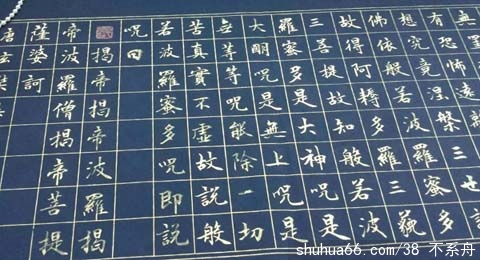 無
有恐怖遠離
想究竟涅槃三世諸
佛依般若波羅蜜多
故得阿耨多羅三藐
三菩提故知般若波
羅蜜多是大神咒是
大明咒是無上咒是
無等等咒能除一切
苦真實不虛故說般
若波羅蜜多咒即說
咒曰
揭帝揭帝波羅揭
帝波羅僧揭帝菩提
薩婆訶
唐玄奘
shuhua66.com/38 不系舟